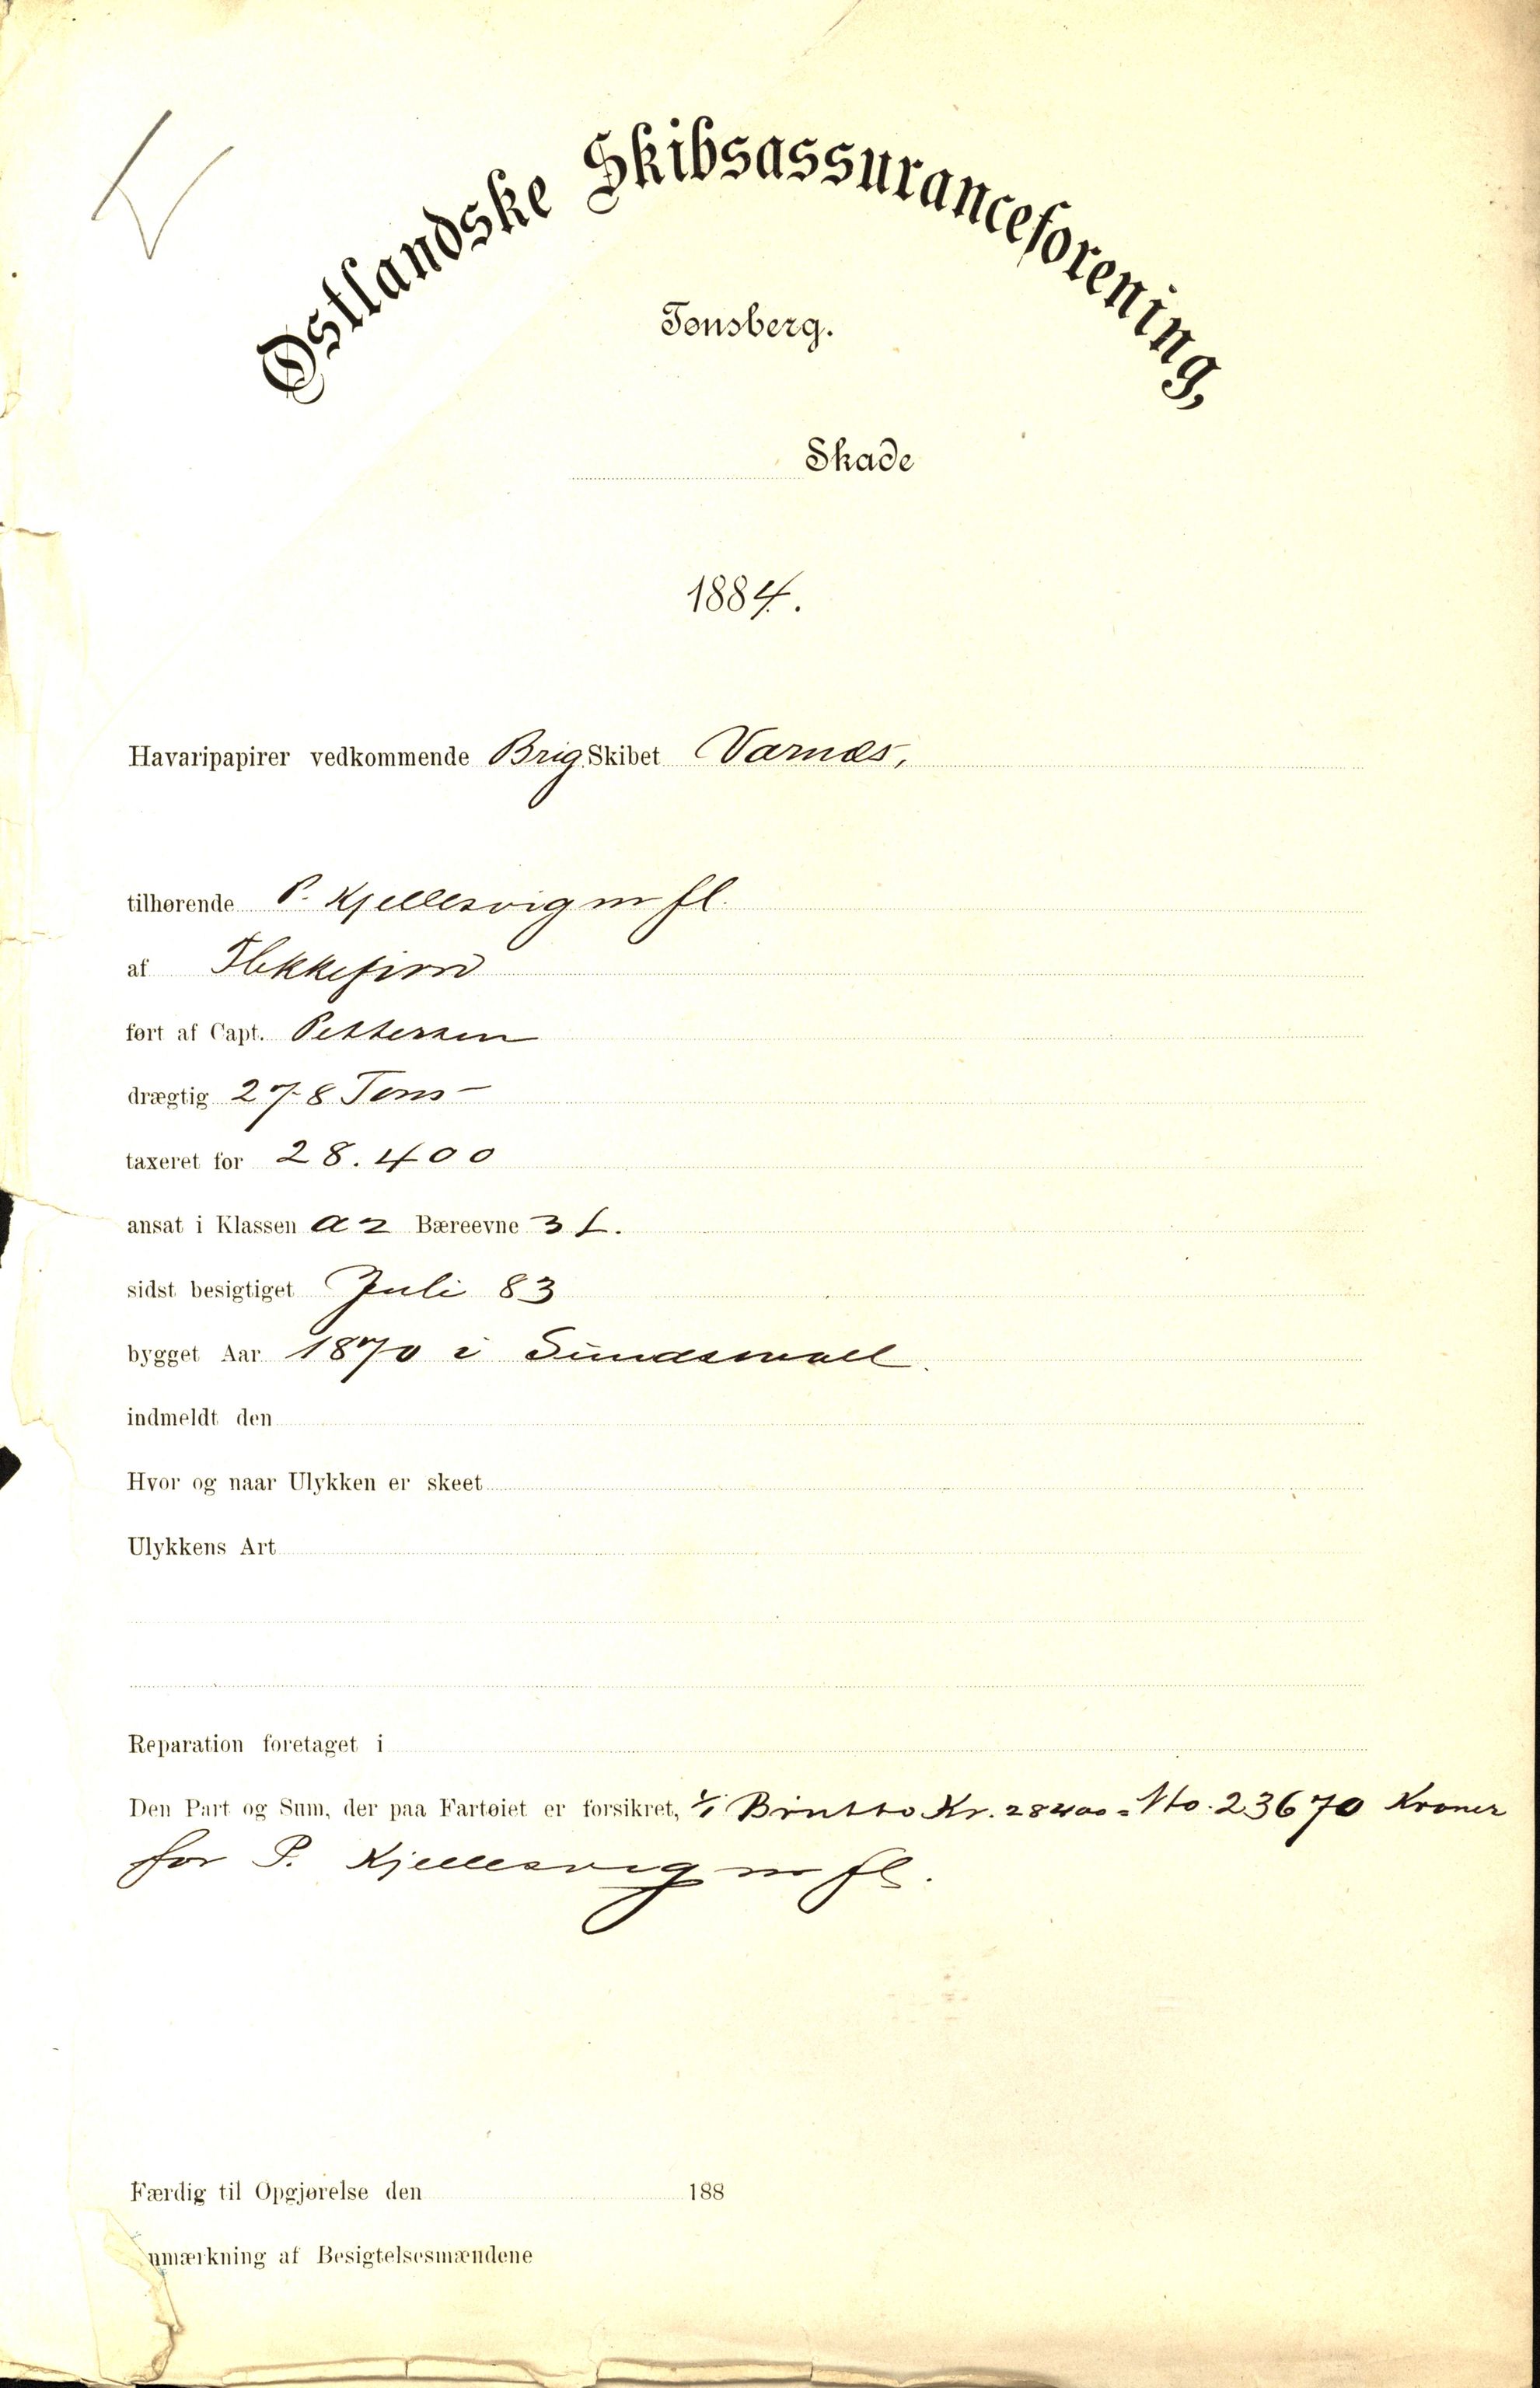 Østlandske Skibsassuranceforening,
Tønsberg.
Skade
1884.
Havaripapirer vedkommende Brig Skibet Varnæs,
tilhørende P. Kjellesvig m fl.
af Flekkefjord
ført af Capt. Pettersen
drægtig 278 Tons
taxeret for 28.400
ansat i Klassen A2 Bæreevne 3 L.
sidst besigtiget Juli 83
bygget Aar 1870 i Sundsvall.
indmeldt den
Hvor og naar Ulykken er skeet
Ulykkens Art
Reparation foretaget i
Den Part og Sum, der paa Fartøiet er forsikret, 1/1 Brutto Kr. 28400 = Nto. 23670 Kroner
for P. Kjellesvig m fl.
Færdig til Opgjørelse den 188
nmærkning af Besigtelsesmændene